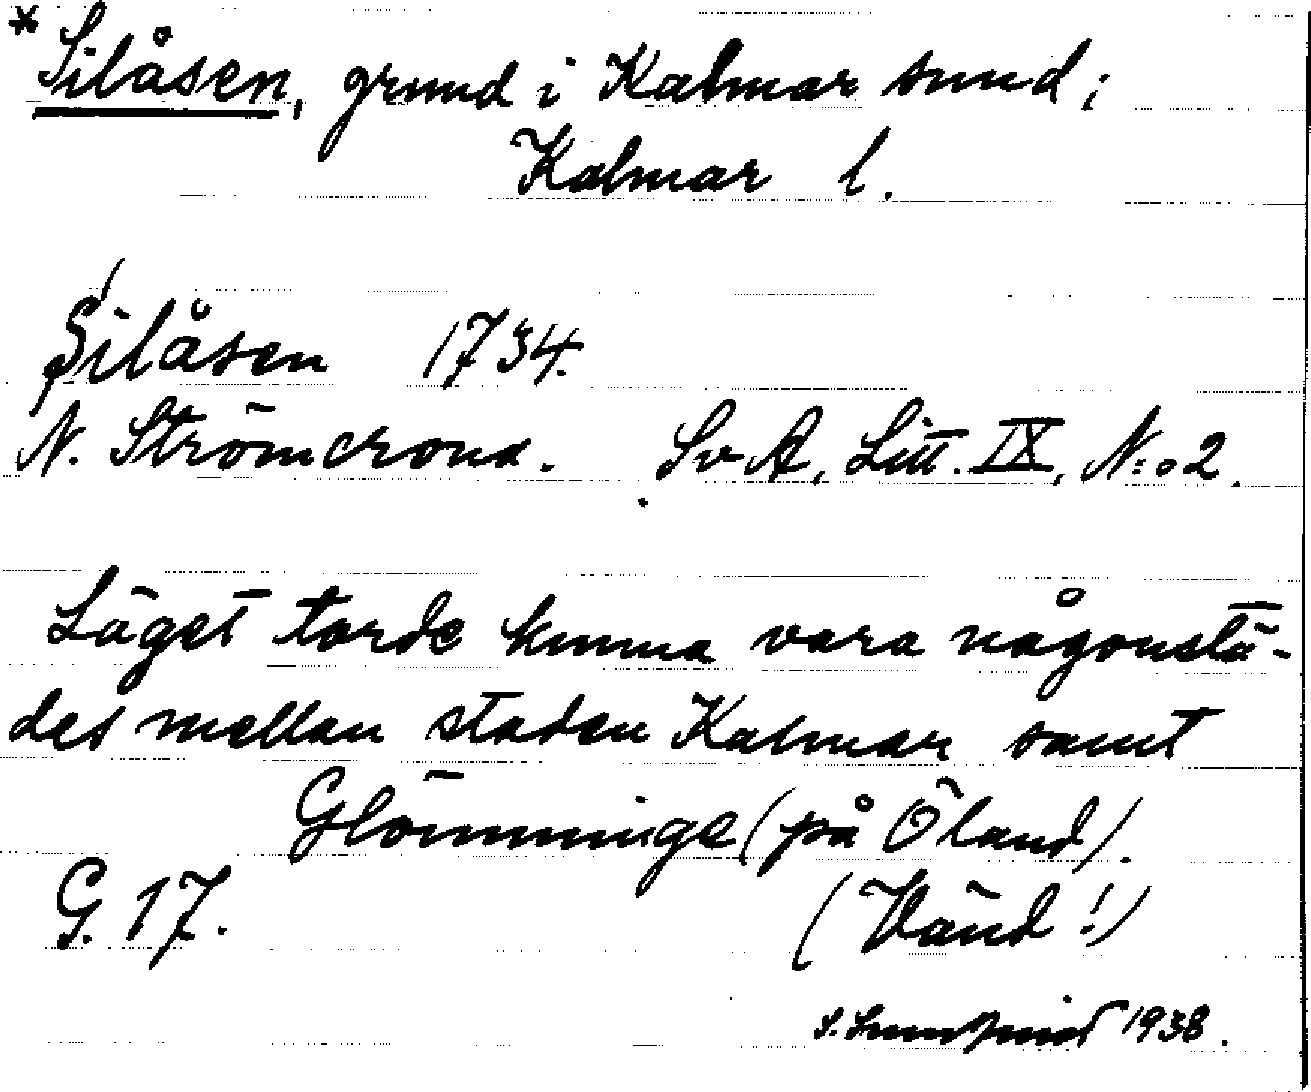 * Silåsen, grund i Kalmar sund;
Kalmar l.
Silåsen 1734.
N. Strömcrona. SvA, Litt. IX, N:o 2.
Läget torde kunna vara någonstä-
des mellan staden Kalmar samt
Glömminge (på Öland).
G. 17. (Vänd!)
S. 1938.